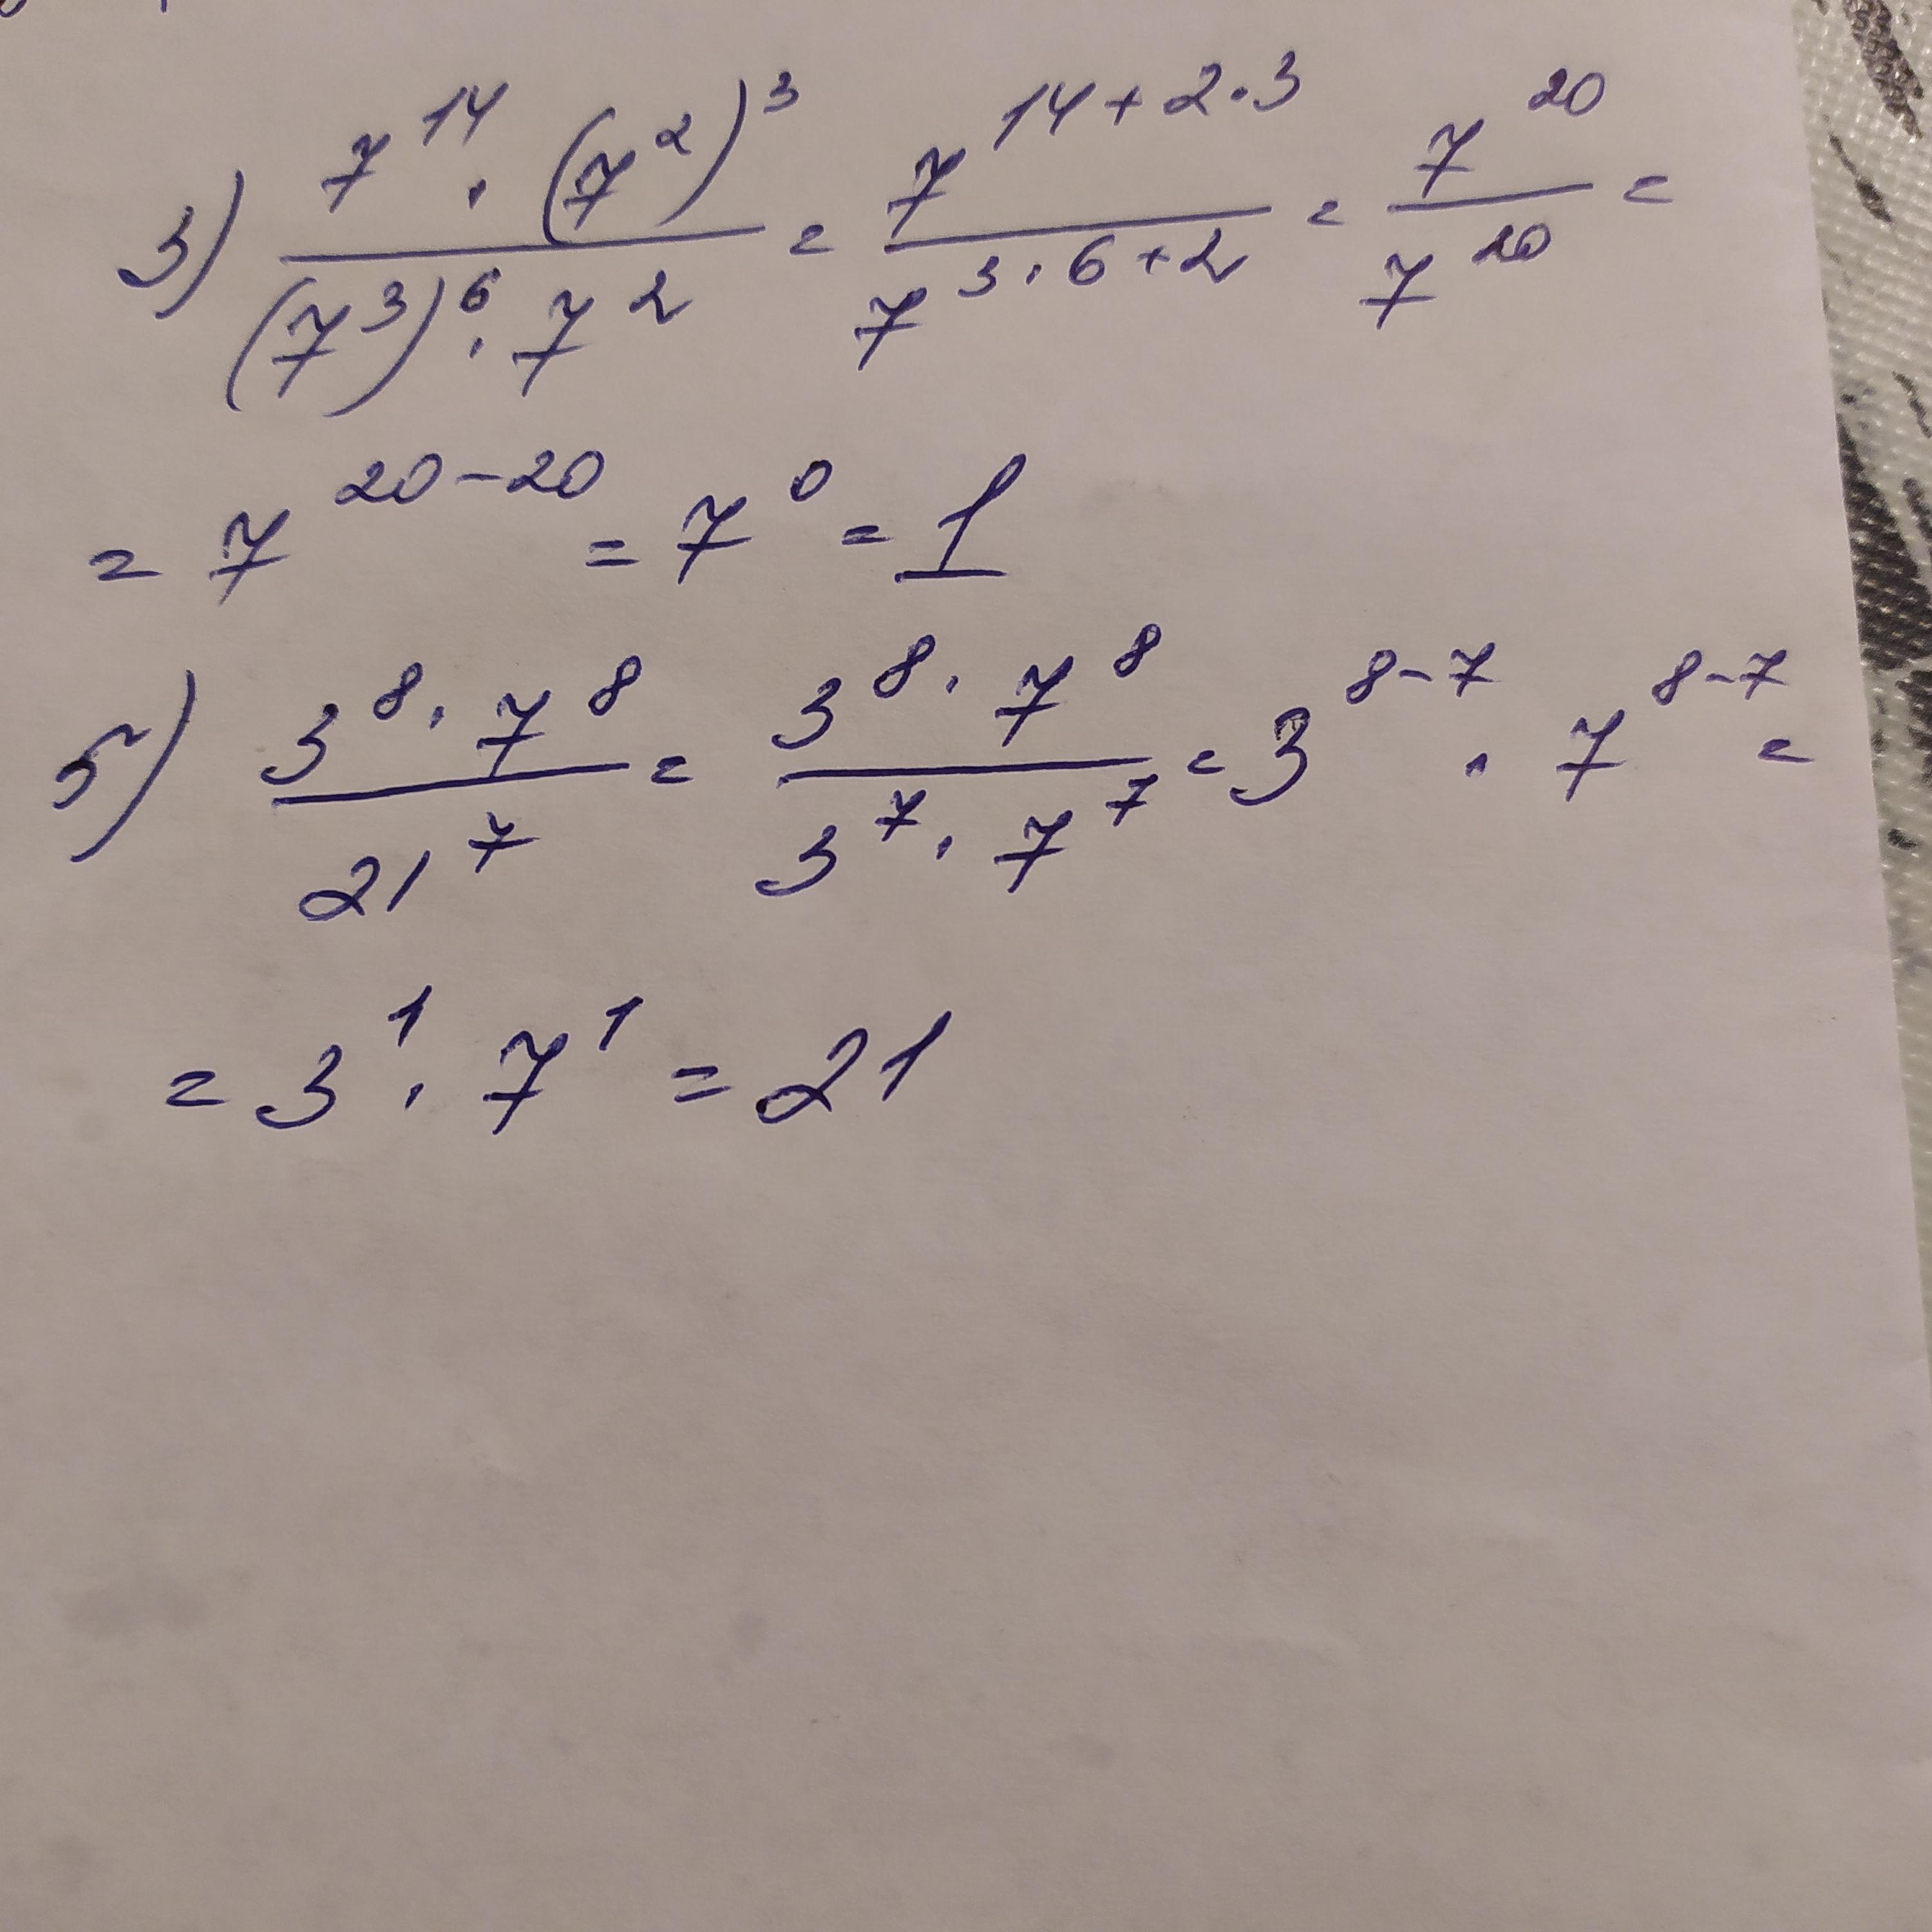 3) \frac{7^{14} \cdot (7^2)^3}{(7^3)^6 \cdot 7^2} = \frac{7^{14+2 \cdot 3}}{7^{3 \cdot 6+2}} = \frac{7^{20}}{7^{20}} =
= 7^{20-20} = 7^0 = 1
5) \frac{3^8 \cdot 7^8}{21^7} = \frac{3^8 \cdot 7^8}{3^7 \cdot 7^7} = 3^{8-7} \cdot 7^{8-7} =
= 3^1 \cdot 7^1 = 21